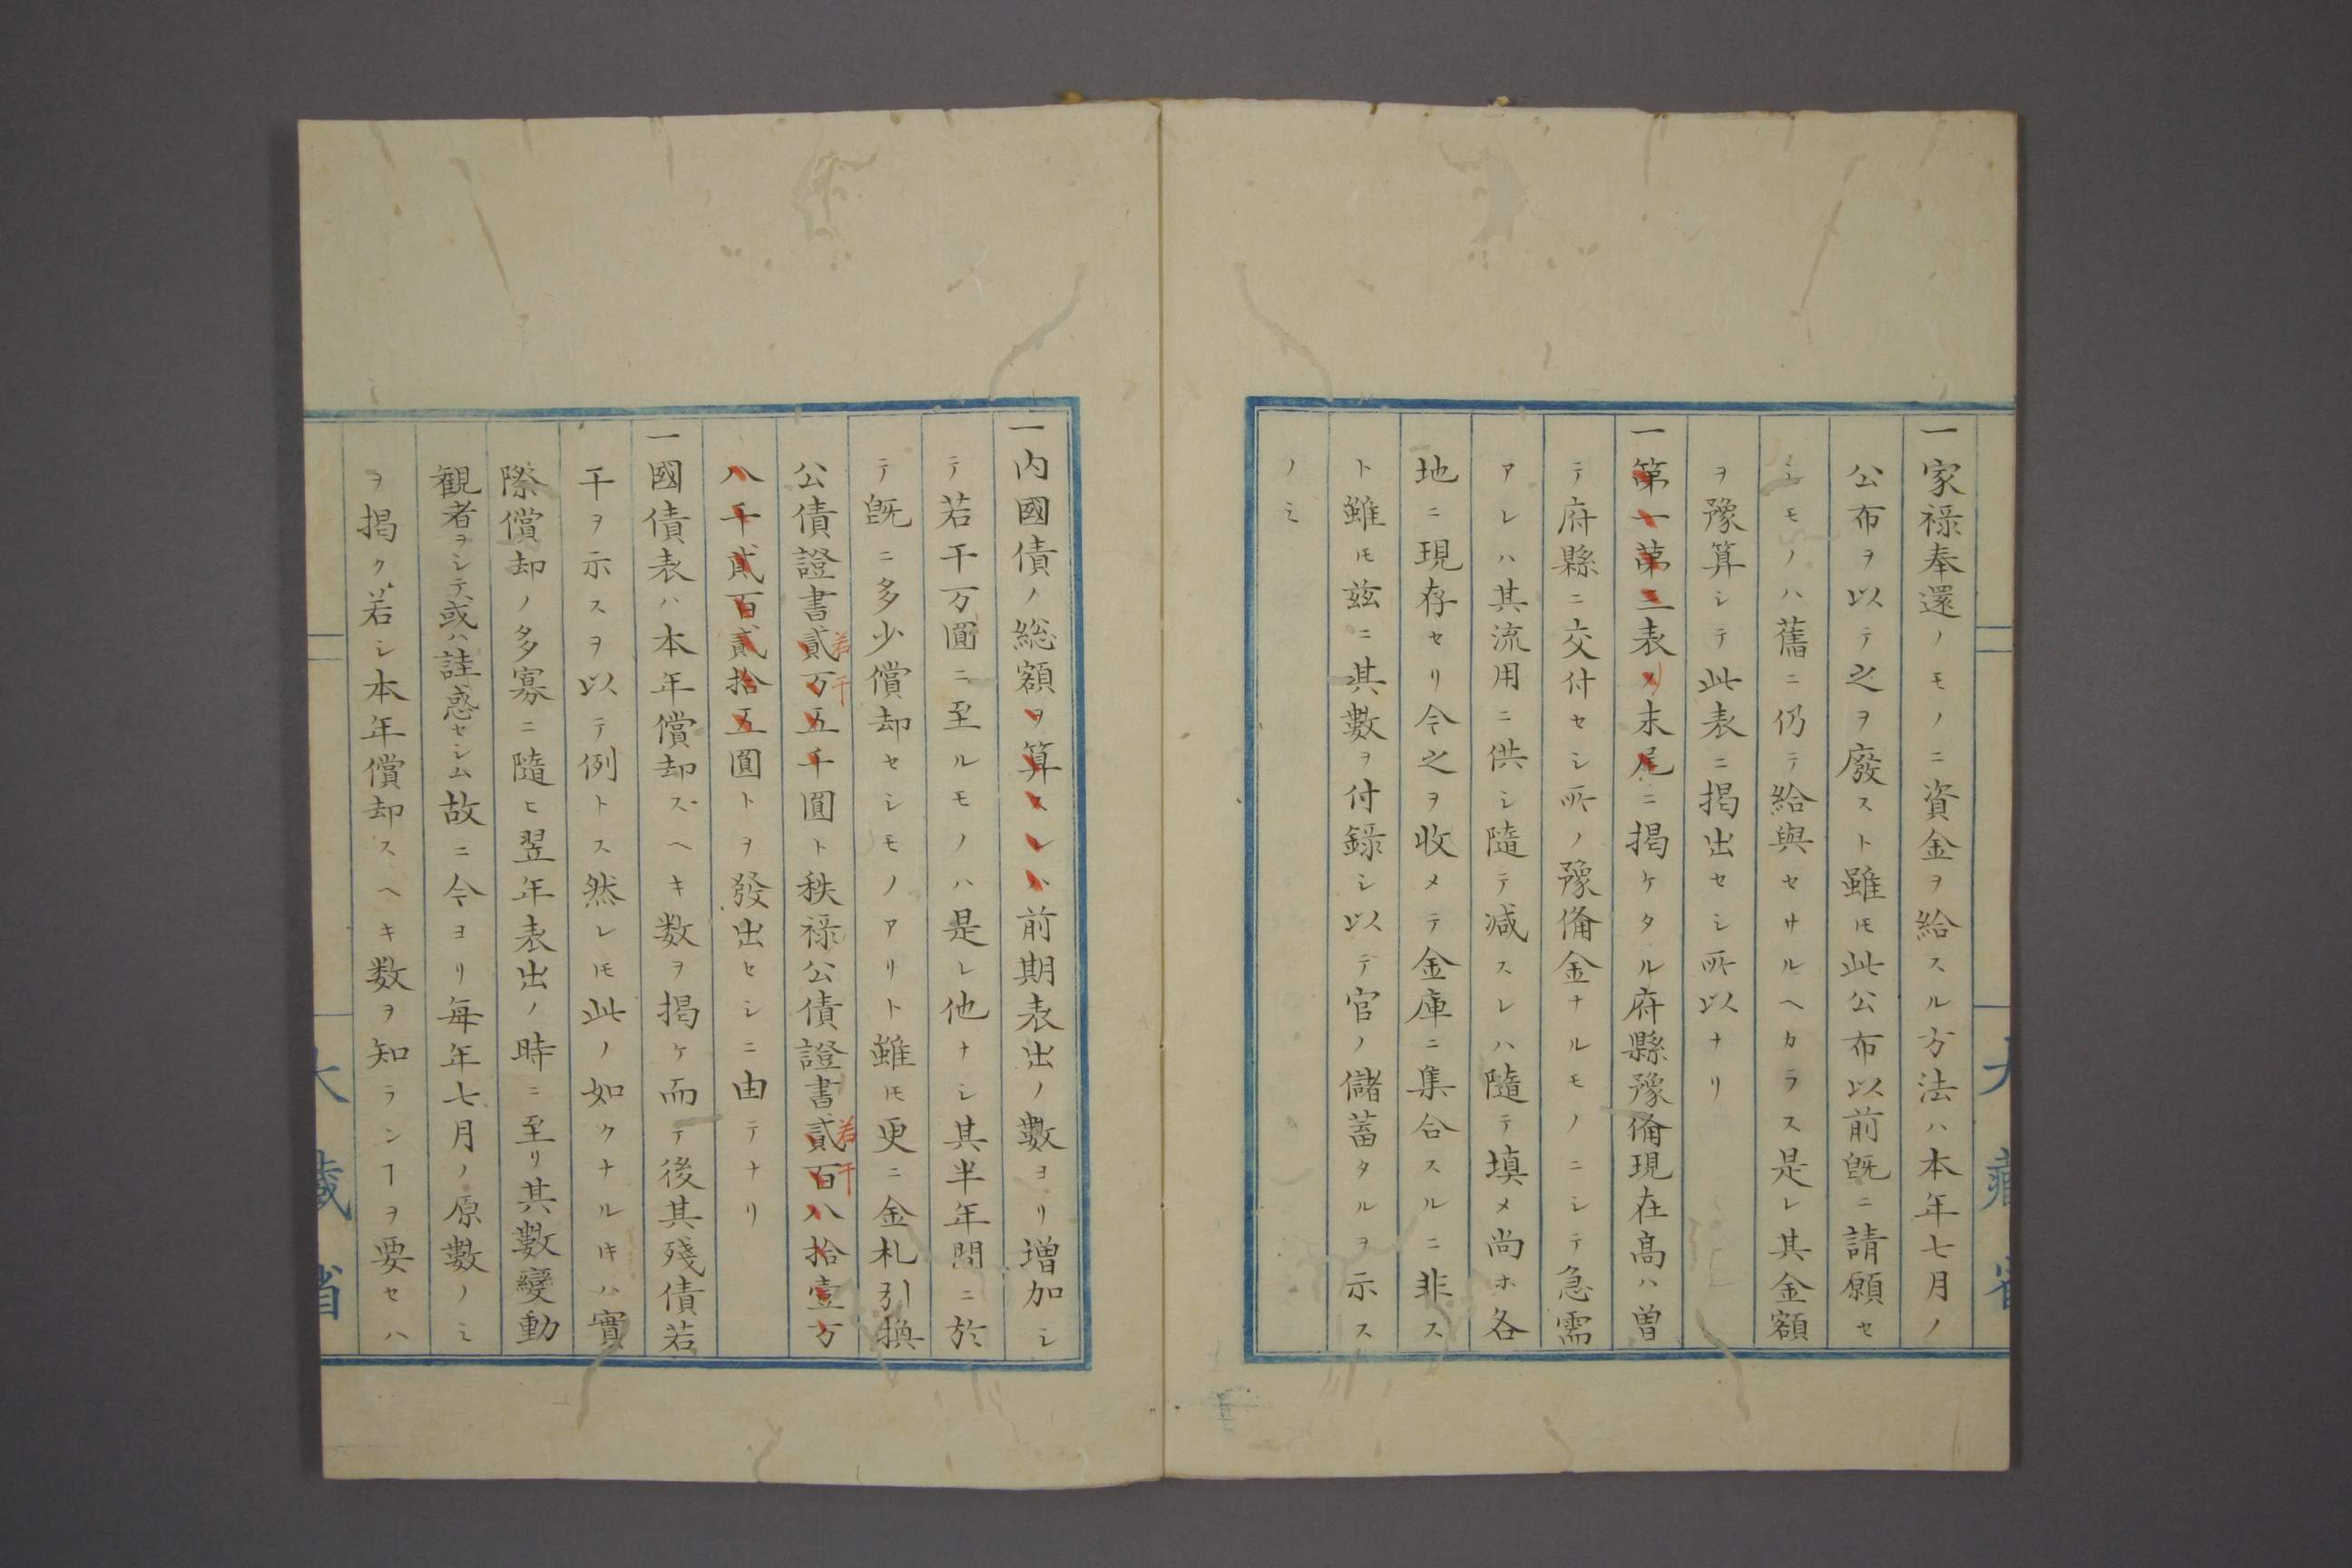 一家禄奉還ノモノニ資金ヲ給スル方法ハ本年七月ノ
公布ヲ以テ之ヲ廢スト雖𪜈此公布以前既ニ請願セ
シモノハ舊ニ仍テ給與セサルヘカラス是レ其金額
ヲ豫算シテ此表ニ掲出セシ所以ナリ
一第一第二表ノ末尾ニ掲ケタル府縣豫備現在高ハ曽
テ府縣ニ交付セシ所ノ豫備金ナルモノニシテ急需
アレハ其流用ニ供シ隨テ减スレハ隨テ填メ尚ホ各
地ニ現存セリ今之ヲ收メテ金庫ニ集合スルニ非ス
ト雖𪜈茲ニ其數ヲ付録シ以テ官ノ儲蓄タルヲ示ス
ノミ
大藏省
一内國債ノ総額ヲ算スレハ前期表出ノ數ヨリ増加シ
テ若干万圓ニ至ルモノハ是レ他ナシ其半年間ニ於
テ既ニ多少償却セシモノアリト雖𪜈更ニ金札引換
公債證書貳万五千圓ト秩禄公債證書貳百八拾壹万
若干
若干
八千貳百貳拾五圓トヲ發出セシニ由テナリ
一國債表ハ本年償却スヘキ数ヲ掲ケ而テ後其殘債若
干ヲ示スヲ以テ例トス然レ𪜈此ノ如クナル𪜈ハ實
際償却ノ多寡ニ隨ヒ翌年表出ノ時ニ至リ其數變動
観者ヲシテ或ハ詿惑セシム故ニ今ヨリ毎年七月ノ原數ノミ
ヲ掲ク若シ本年償却スヘキ数ヲ知ランヿヲ要セハ
大藏省